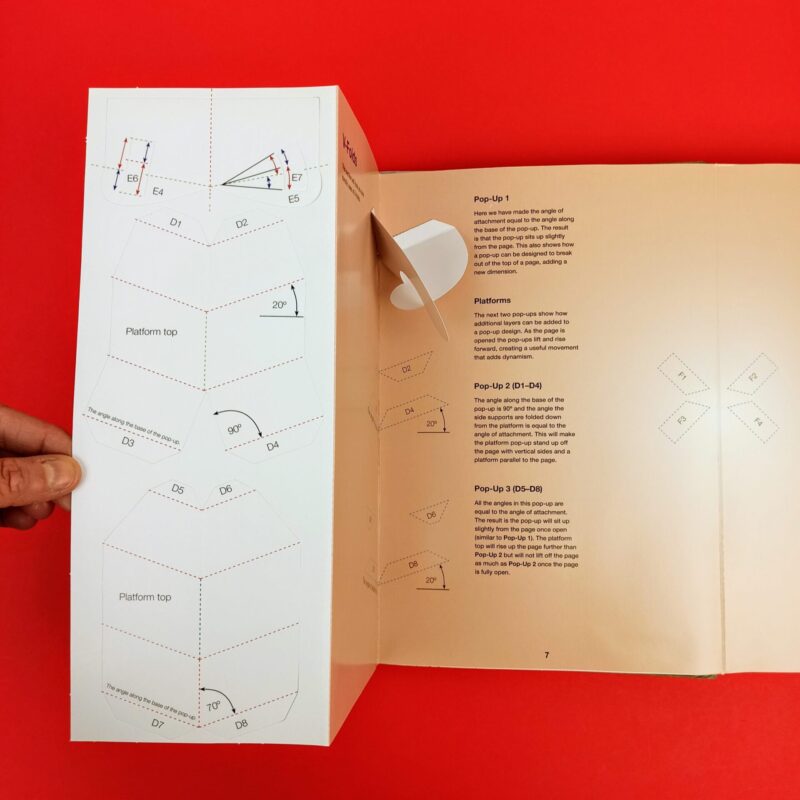 E6
E4
E7
E5
D1
D2
20º
Platform top
The angle along the base of the pop-up.
90º
D3
D4
D5
D6
Platform top
The angle along the base of the pop-up
70º
D7
D8
V-Folds
D2
D4
20º
D6
D8
20º
Pop-Up 1
Here we have made the angle of
attachment equal to the angle along
the base of the pop-up. The result
is that the pop-up sits up slightly
from the page. This also shows how
a pop-up can be designed to break
out of the top of a page, adding a
new dimension.
Platforms
The next two pop-ups show how
additional layers can be added to
a pop-up design. As the page is
opened the pop-ups lift and rise
forward, creating a useful movement
that adds dynamism.
Pop-Up 2 (D1–D4)
The angle along the base of the
pop-up is 90º and the angle the
side supports are folded down
from the platform is equal to the
angle of attachment. This will make
the platform pop-up stand up off
the page with vertical sides and a
platform parallel to the page.
Pop-Up 3 (D5–D8)
All the angles in this pop-up are
equal to the angle of attachment.
The result is the pop-up will sit up
slightly from the page once open
(similar to Pop-Up 1). The platform
top will rise up the page further than
Pop-Up 2 but will not lift off the page
as much as Pop-Up 2 once the page
is fully open.
7
F1
F2
F3
F4